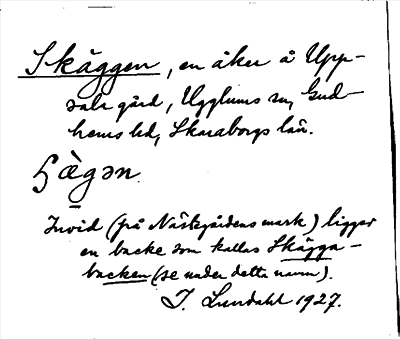 Skäggen, en åker å Upp-
sala gård, Ugglums sn, Gud-
hems hd, Skaraborgs län.
ʃɑ̀gən.
Invid (på Nästegårdens mark) ligger
en backe som kallas Skägga-
backen (se under detta namn).
J. Lundahl 1927.